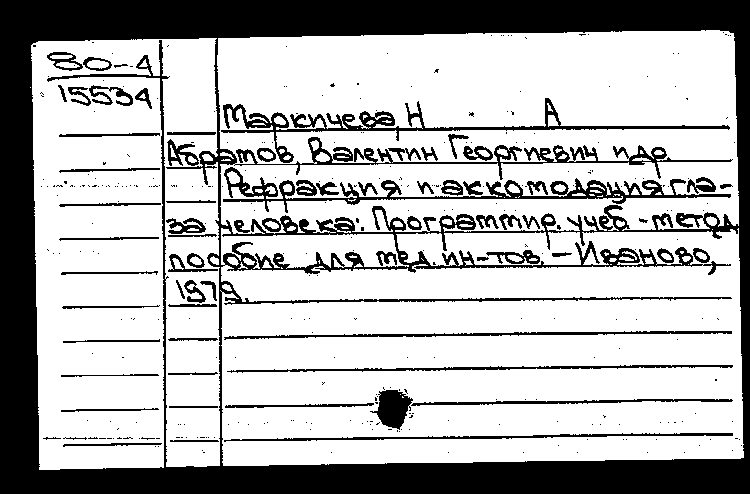 80-4
15534
Маркичева, Н А
Абратов, Валентин Георгиевич и др.
Рефракция и аккомодация гла-
за человека: Программир. учеб.-метод.
пособие для мед. ин-тов. – Иваново,
1979.